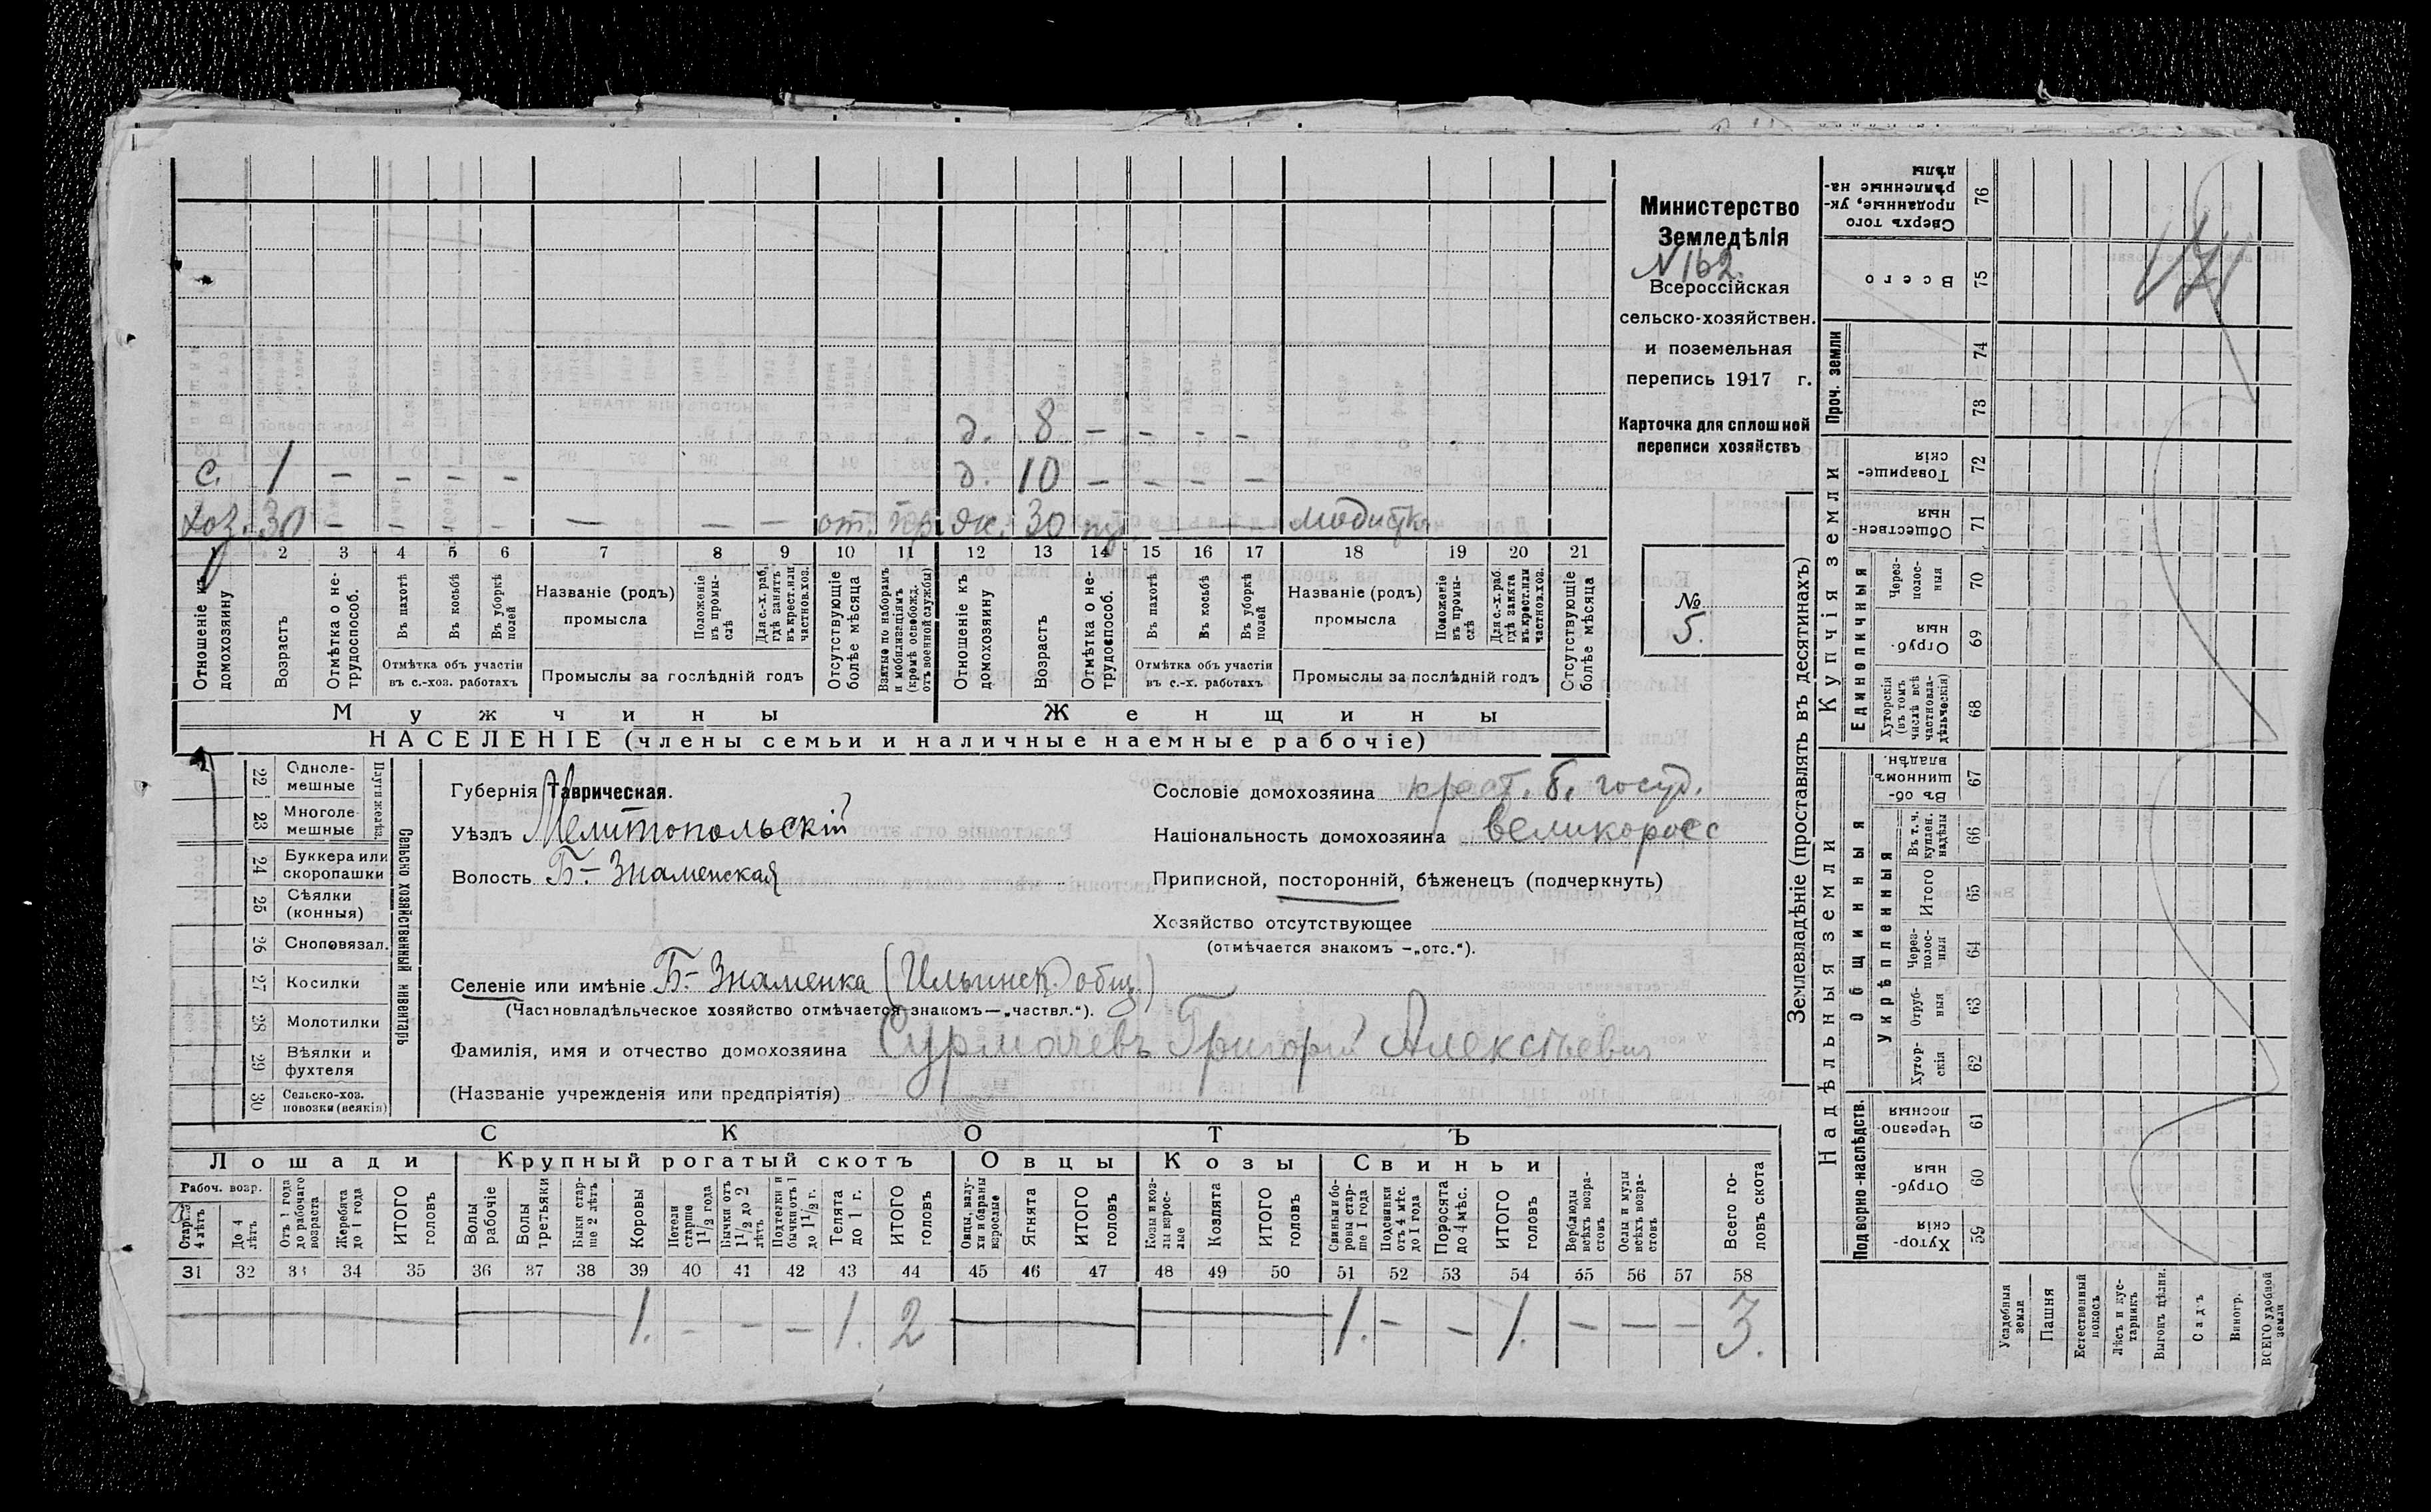 Министерство
Земледѣлія
N 162.
Всероссійская
сельско-хозяйствен.
и поземельная
перепись 1917 г.
Карточка для сплошной
переписи хозяйствъ
№
5.
д. 8 - - - -
с. 1 - - - - д. 10 - - - -
хоз. 30 - - - - - - - от. пр. ж. 30 - - модистка
1 2 3 4 5 6 7 8 9 10 11 12 13 14 15 16 17 18 19 20 21
Отношеніе къ домохозяину
Возрастъ
Отмѣтка о не-трудоспособ.
Въ пахотѣ
Въ косьбѣ
Въ уборкѣ полей
Отмѣтка объ участіи въ с.-хоз. работахъ
Названіе (родъ) промысла
Положеніе въ промы-слѣ
Для с.-х. раб. гдѣ занятъ въ крест. или частновл. хоз.
Промыслы за послѣдній годъ
Отсутствующіе болѣе мѣсяца
Взятые по наборамъ и мобилизаціямъ (кромѣ освобожд. отъ военной службы)
Отношеніе къ домохозяину
Возрастъ
Отмѣтка о не-трудоспособ.
Въ пахотѣ
Въ косьбѣ
Въ уборкѣ полей
Отмѣтка объ участіи въ с.-х. работахъ
Названіе (родъ) промысла
Положеніе въ промы-слѣ
Для с.-х. раб. гдѣ занята въ крест. или частнов. хоз.
Промыслы за послѣдній годъ
Отсутствующіе болѣе мѣсяца
Мужчины
Женщины
НАСЕЛЕНІЕ (члены семьи и наличные наемные рабочіе)
22 Одноле-мешные
23 Многоле-мешные
Плуги желѣз.
24 Буккера или скоропашки
25 Сѣялки (конныя)
26 Сноповязал.
27 Косилки
28 Молотилки
29 Вѣялки и фухтеля
30 Сельско-хоз. повозки (всякія)
Сельско хозяйственный инвентарь
Губернія Таврическая.
Уѣздъ Мелитопольскій
Волость Б-Знаменская
Сословіе домохозяина крест. б. госуд.
Національность домохозяина великоросс
Приписной, посторонній, бѣженецъ (подчеркнуть)
Хозяйство отсутствующее
(отмѣчается знакомъ —„отс.“).
Селеніе или имѣніе Б-Знаменка (Ильинск. общ.)
(Частновладѣльческое хозяйство отмѣчается знакомъ—„частвл.“).
Фамилія, имя и отчество домохозяина Сурмачевъ Григорій Алексѣевич
(Названіе учрежденія или предпріятія)
СКОТЪ
Лошади
Крупный рогатый скотъ
Овцы
Козы
Свиньи
Рабоч. возр.
Старше 4 лѣтъ
До 4 лѣтъ
Отъ 1 года до рабочаго возраста
Жеребята до 1 года
ИТОГО головъ
Волы рабочіе
Волы третьяки
Быки стар-ше 2 лѣтъ
Коровы
Нетели старше 1 1/2 года
Бычки отъ 1 1/2 до 2 лѣтъ
Подтелки и бычки отъ 1 до 1 1/2 г.
Телята до 1 г.
ИТОГО головъ
Овцы, валу-хи и бараны взрослые
Ягнята
ИТОГО головъ
Козы и коз-лы взрос-лые
Козлята
ИТОГО головъ
Свиньи и бо-ровы стар-ше 1 года
Подсвинки отъ 4 мѣс. до 1 года
Поросята до 4 мѣс.
ИТОГО головъ
Верблюды всѣхъ возра-стовъ
Ослы и мулы всѣхъ возра-стовъ
Всего го-ловъ скота
31 32 33 34 35 36 37 38 39 40 41 42 43 44 45 46 47 48 49 50 51 52 53 54 55 56 57 58
1. - - - 1. 2 1. - - 1. - - - 3.
Землевладѣніе (проставлять въ десятинахъ)
Купчія земли
Надѣльныя земли
Проч. земли
Единоличныя
Общинныя
Укрѣпленныя
Подворно-наслѣдств.
Сверхъ того проданные, ук-рѣпленные на-дѣлы 76
Всего 75
74
73
Товарище-скія 72
Обществен-ныя 71
Через-полос-ныя 70
Отруб-ныя 69
Хуторскія (въ томъ числѣ всѣ частновла-дѣльческія) 68
Въ об-щинномъ владѣн. 67
Въ т. ч. куплен. надѣлы 66
Итого 65
Через-полос-ныя 64
Отруб-ныя 63
Хутор-скія 62
Черезпо-лосныя 61
Отруб-ныя 60
Хутор-скія 59
Усадебныя земли
Пашня
Естественный покосъ
Лѣсъ и кус-тарникъ
Выгонъ цѣлин.
Садъ
Виногр.
ВСЕГО удобной земли